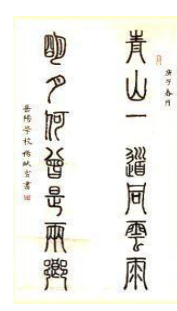 庚子春月
青山一道同雲雨
明月何曾是兩鄉
岳陽学校楊書